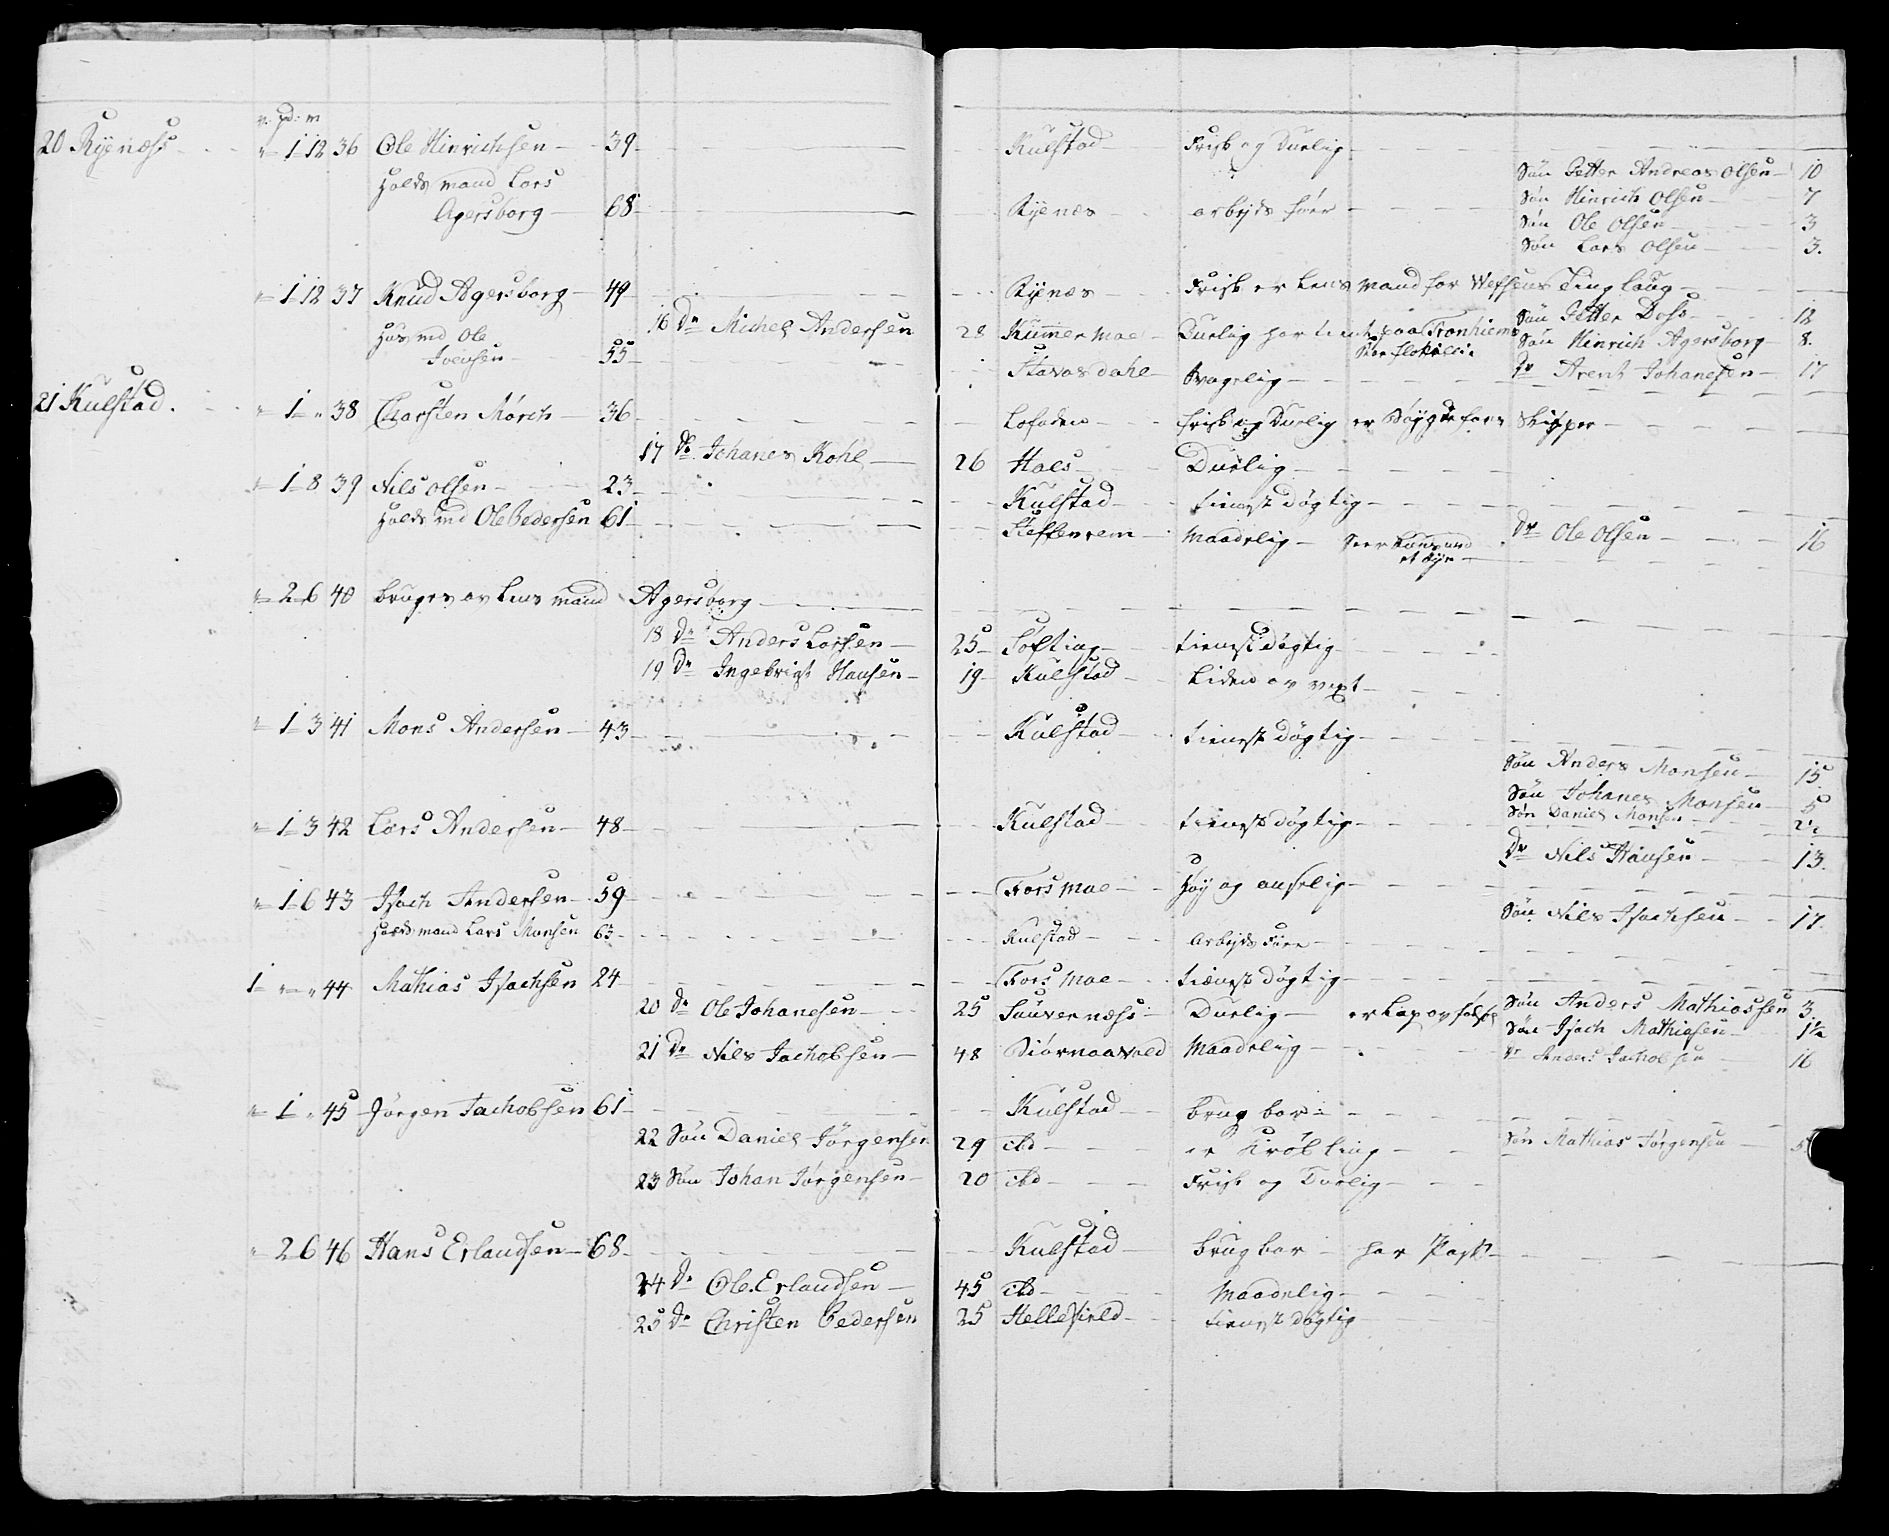 v: pd: m
20 Ryenæss — " 1 12 36 Ole Hinrichsen — 39 — Kulstad — Frisk og Duelig
Søn Petter Andreas Olsen — 10
Holds mand Lars
Agersborg — 68 — Ryenæs — arbyds føer — Søn Hinrich Olsen — 7
Søn Ole Olsen — 3
Søn Lars Olsen — 3.
" 1 12 37 Knud Agersborg — 49 — Ryenæs — Frisk er Lens mand for Wefsens Ting laug —
16 Dr Michel Andersen 28 Kummermoe — Duelig har tient paa Tronhiems
Søn Petter Dass — 12
Hus md Ole
Ivensen — 55 — Stavasdahl — Svagelig —
Søn Hinrich Agersborg — 8.
Dr Arent Johanesen — 17
21 Kulstad. " 1 " 38 Charsten Mørch — 36 — Lofoden — frisk og Duelig er Bøygde fars Skipper —
17 Dr Johanes Kohl — 26 Hals — Duelig —
" 1 8 39 Nils olsen — 23 — Kulstad — tienst døgtig —
Holds md Ole Pedersen 61 — Steffenrem — Maadelig —
Dr Ole Olsen — 16
" 2 6 40 bruges av Lens mand Agersborg —
18 Dr Anders Larsen — 25 Søfting — tienst døgtig
19 Dr Ingebrigt Hansen — 19 Kulstad — Liden av vext —
" 1 3 41 Mons Andersen — 43 — Kulstad — tienst døgtig —
Søn Anders Monsen — 15
Søn Johanes Monsen — 5
Søn Daniel Monsen — 2½
" 1 3 42 Lars Andersen — 48 — Kulstad — tienst døgtig —
Dr Nils Hansen — 13.
" 1 6 43 Isach Andersen — 59 — Forsmoe — Høy og anselig —
Søn Nils Isachsen — 17.
Holds mand Lars Monsen 63 — Kulstad — Arbyds Føer —
1 " " 44 Mathias Isachsen 24 — Forsmoe — tienst døgtig —
20 Dr Ole Johanesen — 25 Sauvernæss — Duelig — er Lap av følsel
Søn Anders Mathiassen 3
Søn Isach Mathiasen — 1½
21 Dr Nils Jachobsen — 48 Biørnaavald Maadelig —
Dr Anders Jachobsen — 16
" 1 " 45 Jørgen Jachobsen 61 — Kulstad — brug bar —
22 Søn Daniel Jørgensen 29 ibd — er Krøbling —
Søn Mathias Jørgensen — 5
23 Søn Johan Jørgensen — 20 ibd — Frisk og Duelig —
" 2 6 46 Hans Erlandsen — 68 — Kulstad — brug bar — har Pass —
24 Dr Ole Erlandsen — 45 ibd — Maadelig —
25 Dr Christen Pedersen 25 Hellefield — tienst døgtig